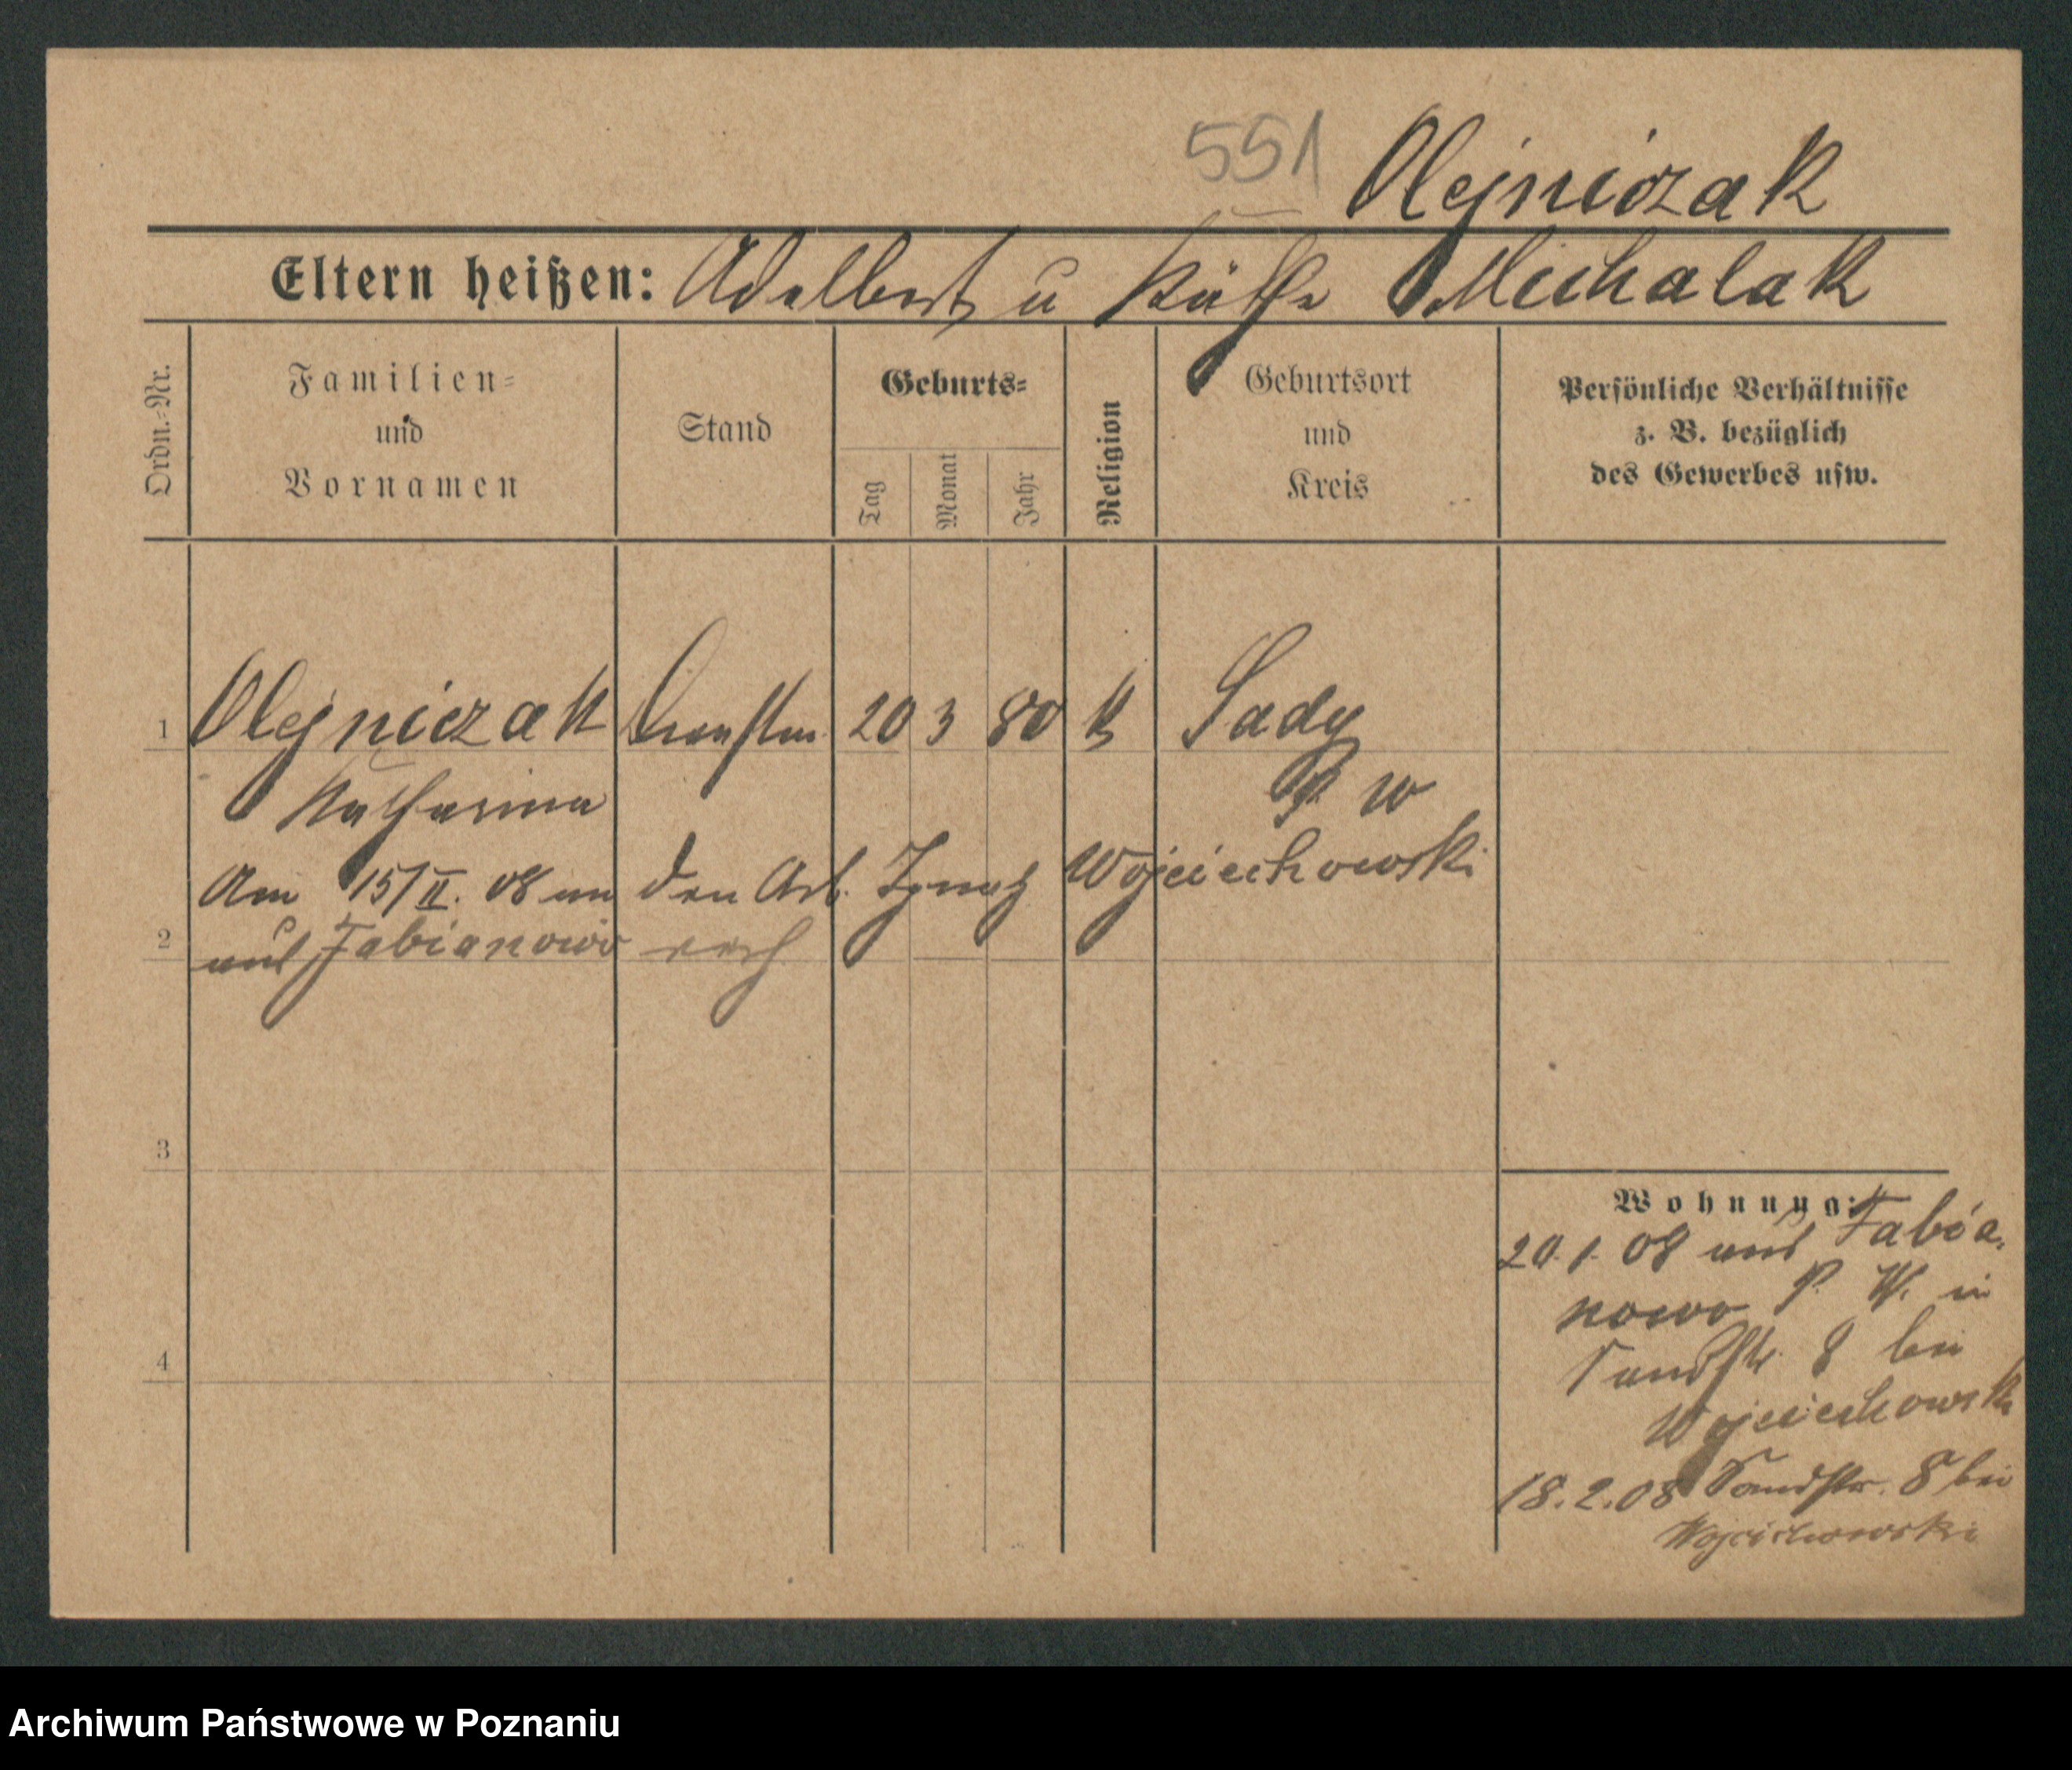 551 Olejniczak
Eltern heißen: Adalbert u Käthe Michalak
Ordn.=Nr.
Familien=
und
Vornamen
Stand
Geburts=
Tag
Monat
Jahr
Religion
Geburtsort
und
Kreis
Persönliche Verhältnisse
z. B. bezüglich
des Gewerbes usw.
1 Olejniczak 20 3 80 k Sady
Katharina P. W
Am 15/II. 08 an den Arb. Ignatz Wojciechowski
2 aus Fabianowo verh
3
4
Wohnung:
20.1.08 aus Fabia-
nowo P. W. in
Sandstr. 8 bei
Wojciechowski
18.2.08 Sandstr. 8 bei
Wojciechowski
Archiwum Państwowe w Poznaniu